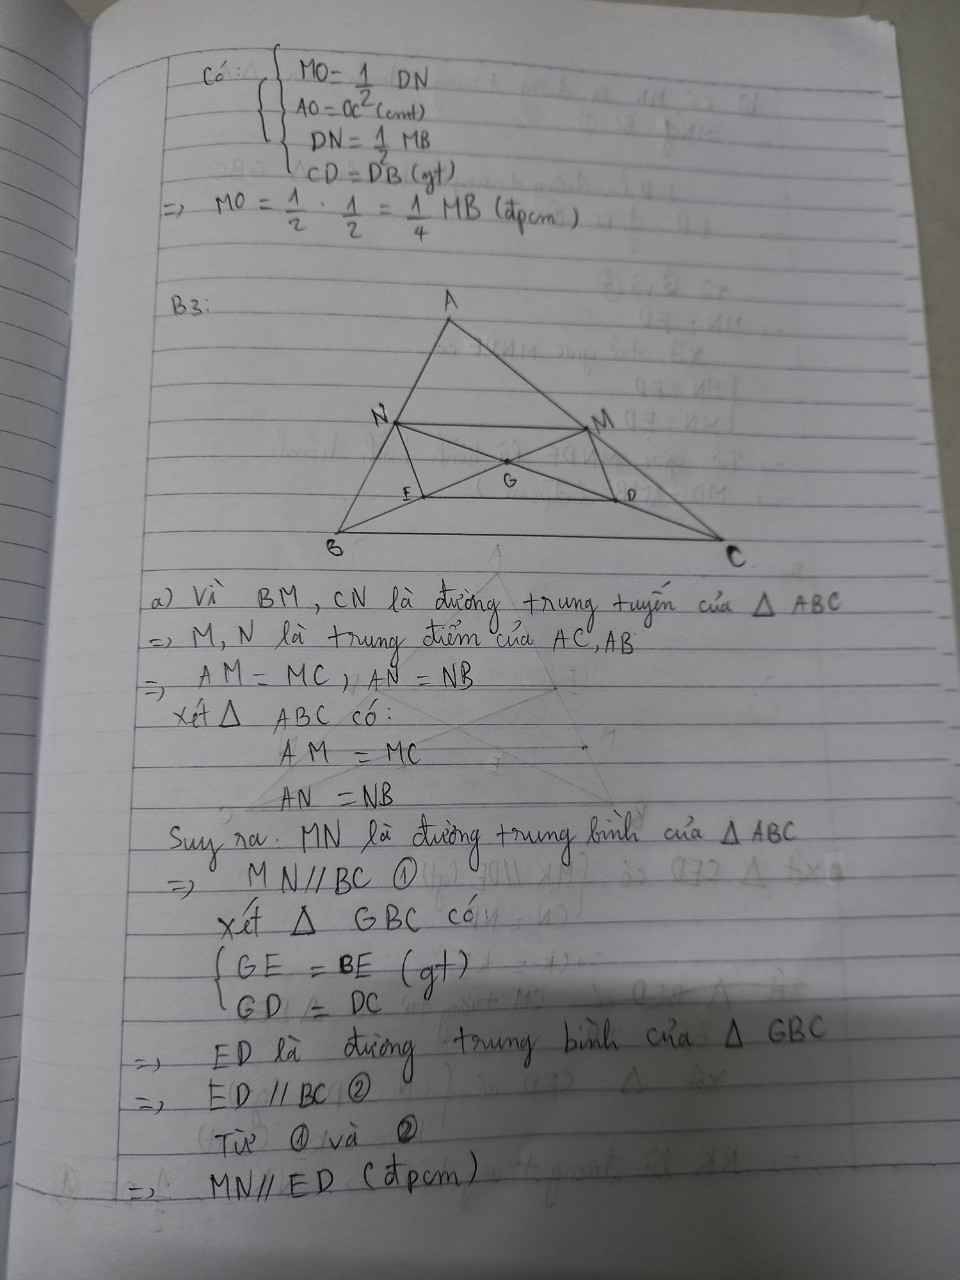 Có: MO = 1/2 DN
AO = OC (cmt)
DN = 1/2 MB
CD = DB (gt)
=> MO = 1/2 . 1/2 = 1/4 MB (đpcm)
B3:
A
N M
G
E D
B C
a) Vì BM, CN là đường trung tuyến của Δ ABC
=> M, N là trung điểm của AC, AB
=> AM = MC, AN = NB
xét Δ ABC có:
AM = MC
AN = NB
Suy ra. MN là đường trung bình của Δ ABC
=> MN // BC ①
xét Δ GBC có
GE = BE (gt)
GD = DC
=> ED là đường trung bình của Δ GBC
=> ED // BC ②
Từ ① và ②
=> MN // ED (đpcm)